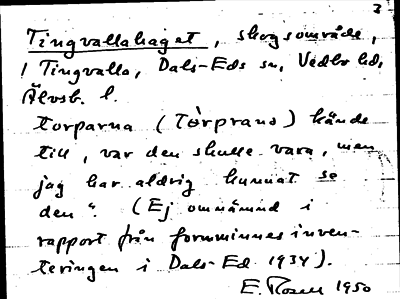 3
Tingvallahaget, skogsområde,
i Tingvalla, Dals-Eds sn, Vedbo hd,
Älvsb. l.
torparna (Tòrprans) kände
till, var den skulle vara, men
jag har aldrig kunnat se
den". (Ej omnämnd i
rapport från fornminnesinven-
teringen i Dals-Ed 1934).
E. Rosell 1950